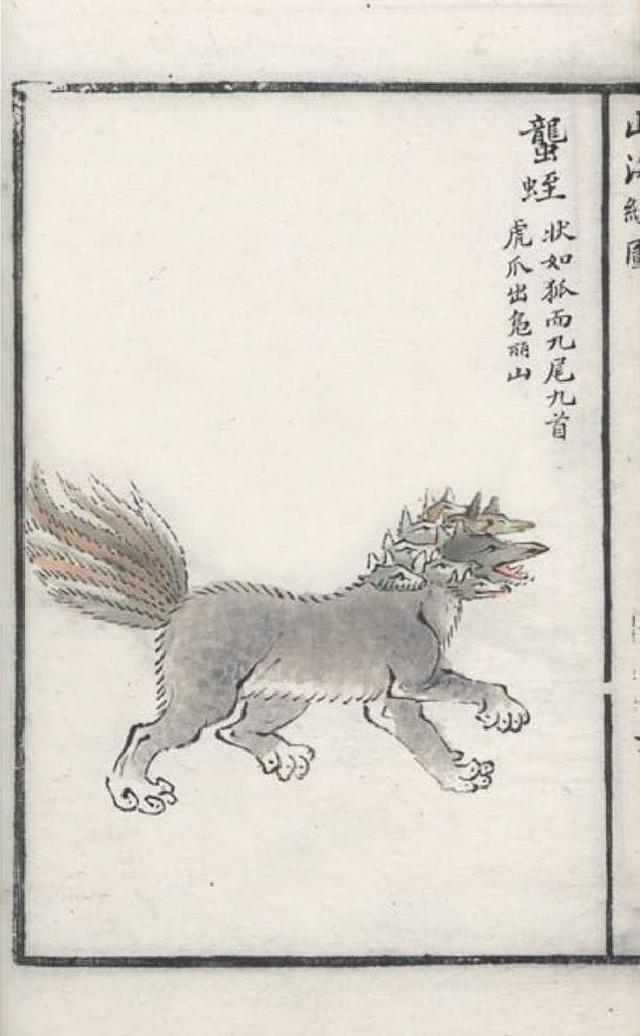 山海經圖
蠪蛭
狀如狐而九尾九首
虎爪出鳧丽山